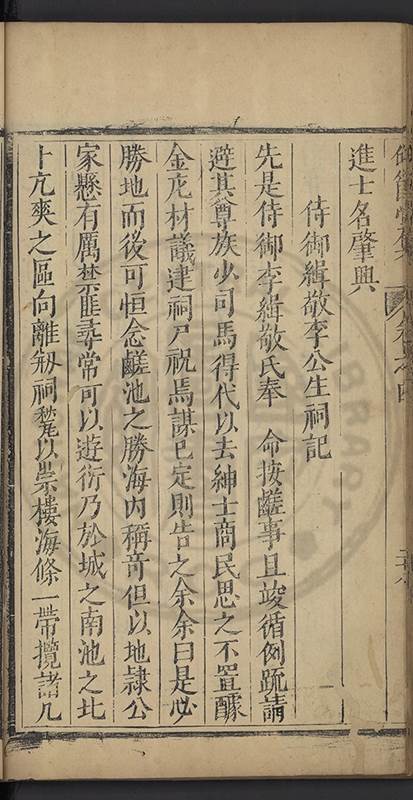 卷之四
進士名肇興
侍御緝敬李公生祠記
先是侍御李緝敬氏奉　命按鹺事且竣循例疏請
避其尊族少司馬得代以去紳士商民思之不置醵
金庀材議建祠尸祝焉謀已定則告之余余曰是必
勝地而後可恒念鹺池之勝海內稱奇但以地隷公
家懸有厲禁匪尋常可以遊衍乃於城之南池之北
卜亢爽之區向離剏祠甃以崇樓海條一帶攬諸几